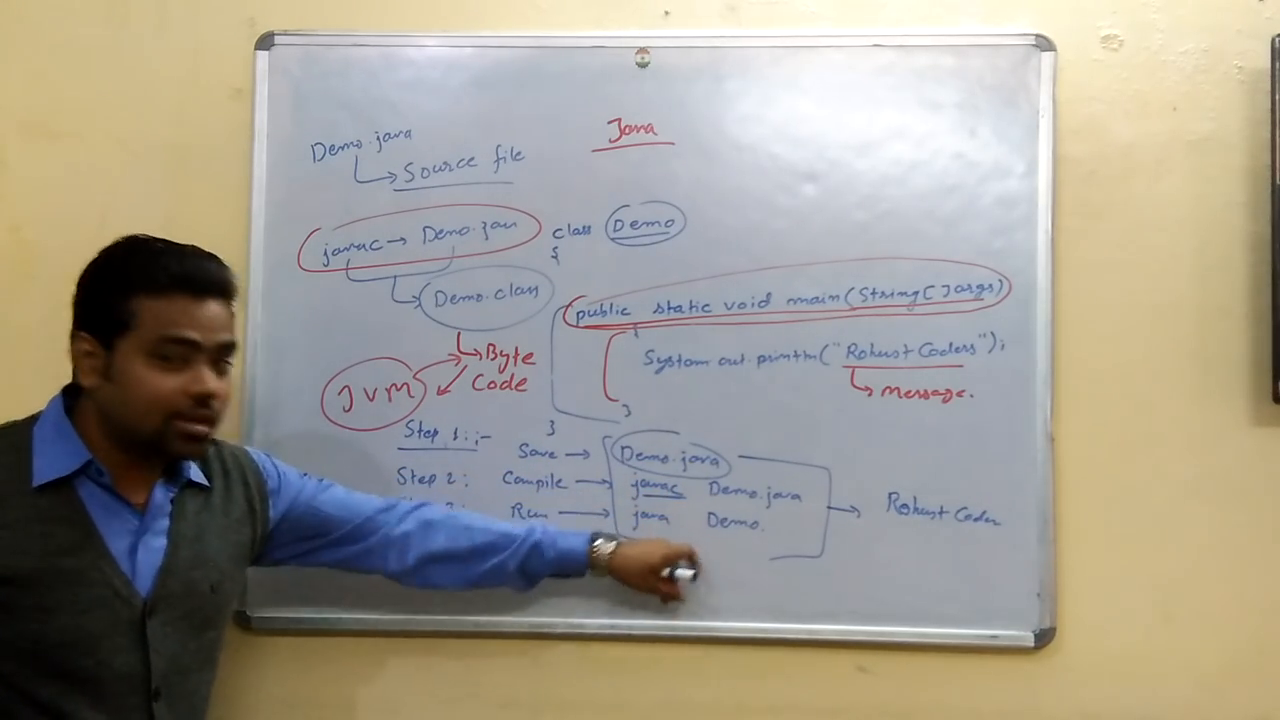 Java
Demo.java
Source file
javac → Demo.java
class Demo
{
Demo.class
public static void main(String[] args)
{
System.out.println("Robust Coders");
Byte
Code
JVM
message.
}
}
Step 1:-
Save → Demo.java
Step 2: Compile → javac Demo.java
Run → java Demo.
Robust Coder